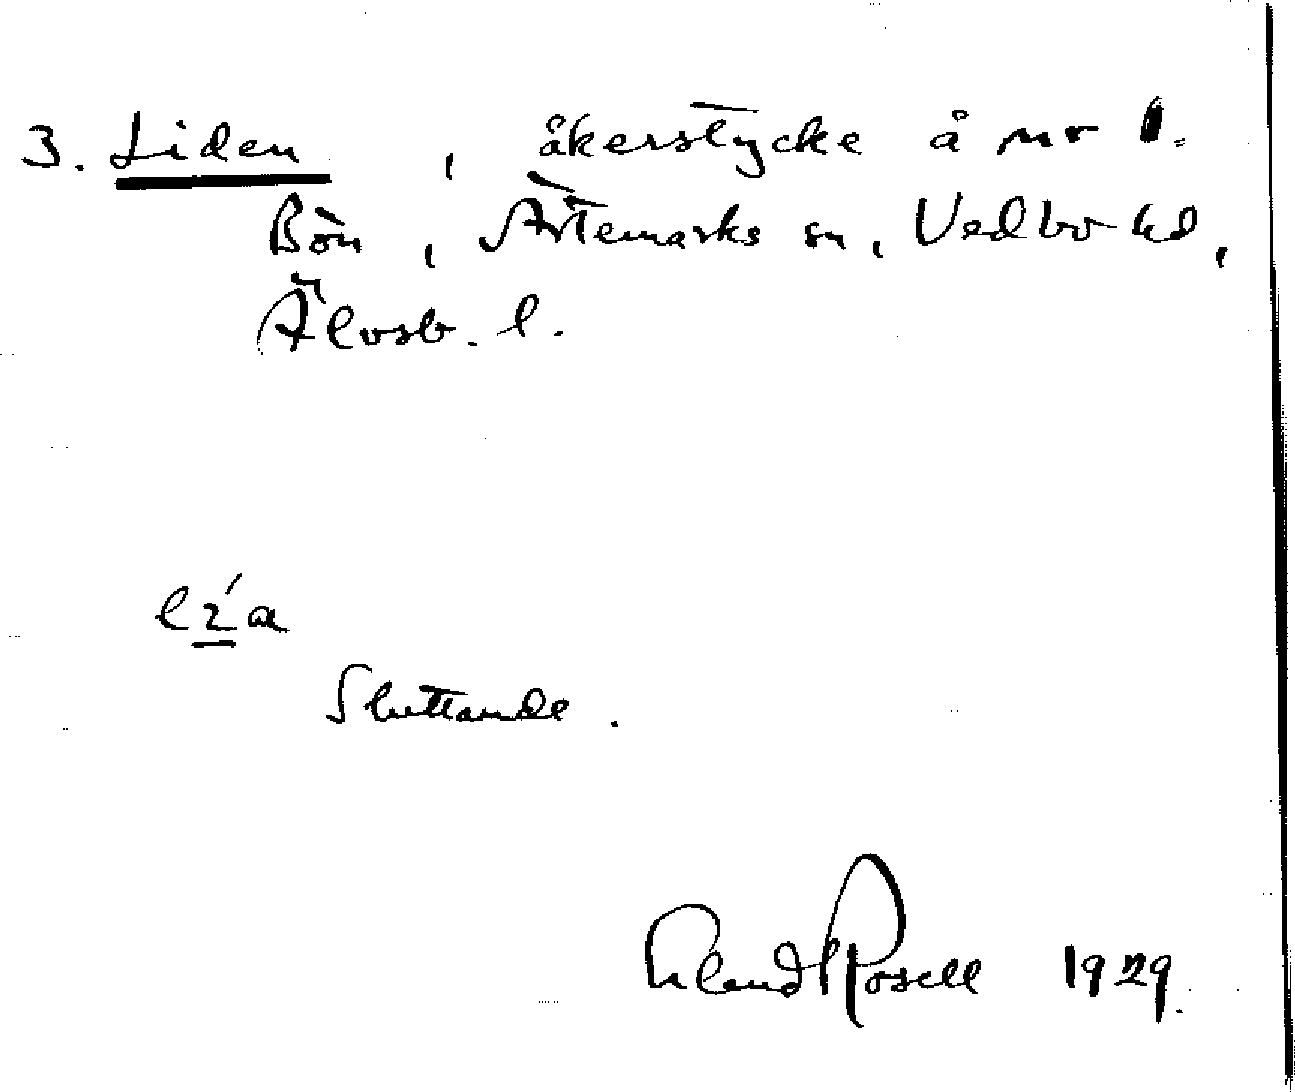 3. Liden, åkerstycke å nr 1.
Bön, Ärtemarks sn, Vedbo hd,
Älvsb. l.
Sluttande.
Erland Rosell 1929.